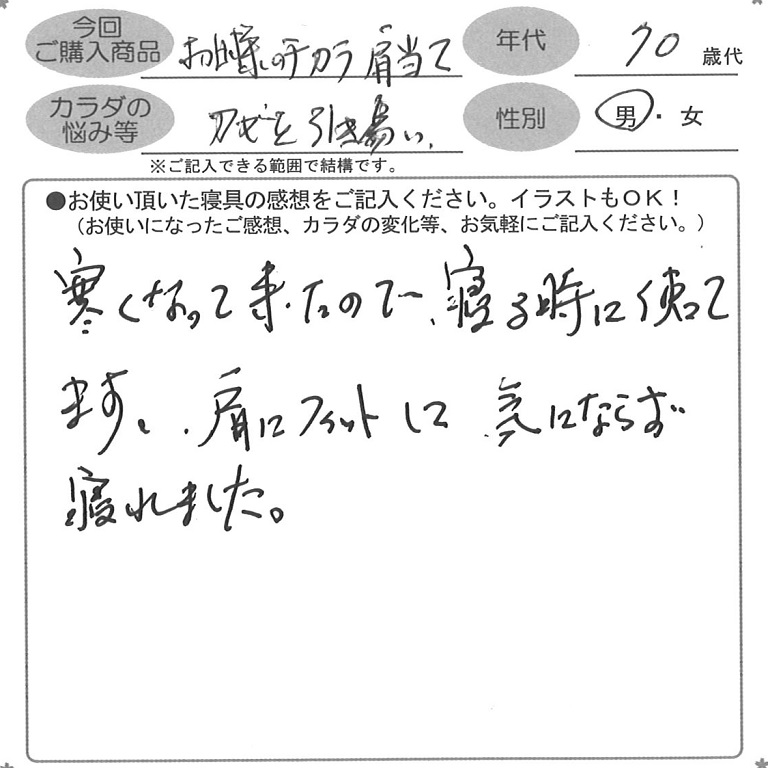 今回
ご購入商品
お昼寝のチカラ 肩当て
年代
70 歳代
カラダの
悩み等
カゼを引き易い、
性別
男・女
※ご記入できる範囲で結構です。
●お使い頂いた寝具の感想をご記入ください。イラストもOK！
（お使いになったご感想、カラダの変化等、お気軽にご記入ください。）
寒くなって来たので、寝る時に使って
ます。肩にフィットして 気にならず
寝れました。